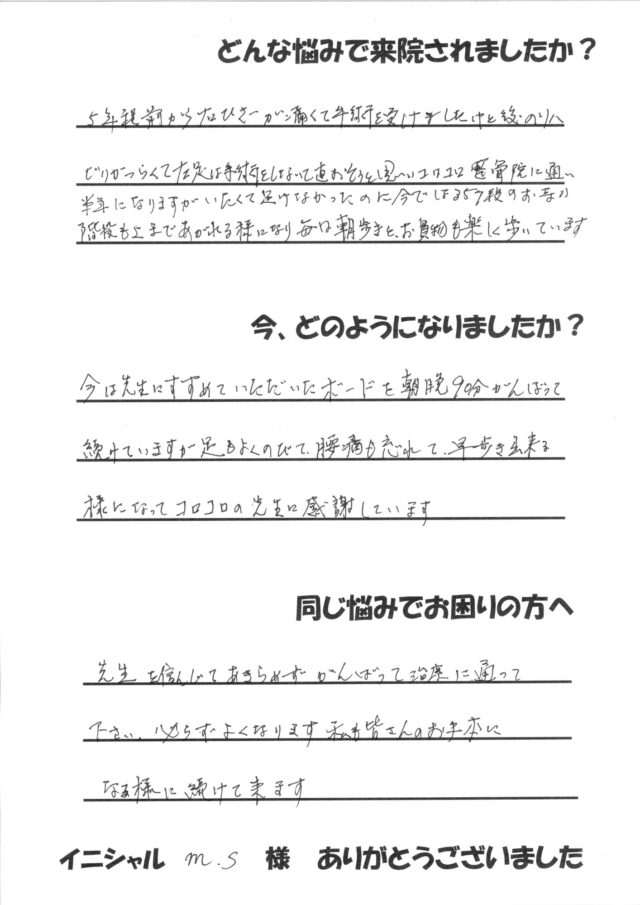 どんな悩みで来院されましたか？
5年程前から右ひざが痛くて手術を受けましたけど後のリハ
ビリがつらくて左足は手術をしないで直おそうと思いコロコロ整骨院に通い
半年になりますがいたくて歩けなかったのに今では57段のお寺の
階段も上まであがれる様になり毎日朝歩きと、お買物も楽しく歩いています
今、どのようになりましたか？
今は先生にすすめていただいたボードを朝晩90分がんばって
続けていますが足もよくのびて、腰痛も忘れて、早歩き出来る
様になってコロコロの先生に感謝しています
同じ悩みでお困りの方へ
先生を信んじてあきらめずがんばって治療に通って
下さい、必らずよくなります私も皆さんのお手本に
なる様に続けて来ます
イニシャル m.s 様 ありがとうございました